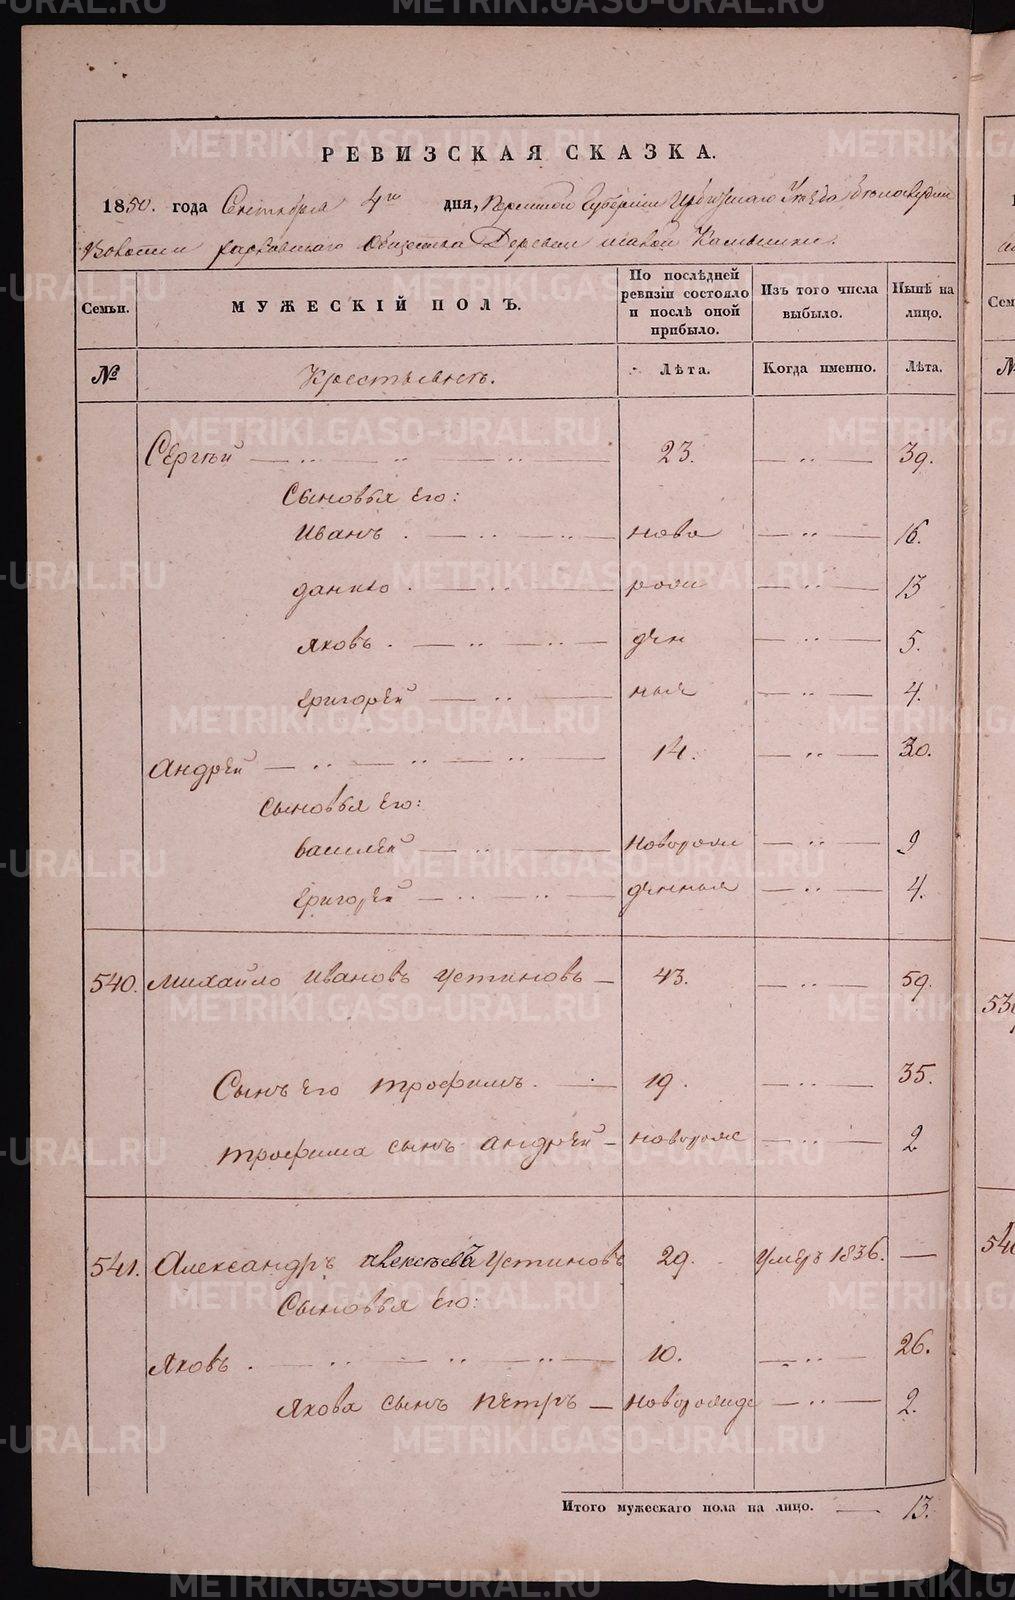 РЕВИЗСКАЯ СКАЗКА.
1850. года Сентября 4го дня, Пермской Губернии Ирбитского Уезда Белослудской
Волости Общества Деревни Камышки.
Семьи.
МУЖЕСКІЙ ПОЛЪ.
По послѣдней ревизіи состояло и послѣ оной прибыло.
Изъ того числа выбыло.
Нынѣ на лицо.
№
Крестьянъ.
Лѣта.
Когда именно.
Лѣта.
Сергѣй — „ — „ — „ — 23. — „ — 39.
Сыновья его:
Иванъ . — „ — „ — ново — „ — 16.
данило . — „ — рож — „ — 13
яковъ . — „ — „ — ден — „ — 5.
григорей — „ — ные — „ — 4.
Андрей — „ — „ — „ — 14. — „ — 30.
сыновья его:
василей — „ — новорож — „ — 9
григорей — „ — „ — денные — „ — 4.
540. михайло ивановъ устиновъ — 43. — „ — 59.
Сынъ его трофимъ. — 19. — „ — 35.
трофима сынъ андрей — новорож — „ — 2
541. Александръ Алексѣевъ устиновъ 29. умеръ 1836. —
Сыновья его:
Яковъ . — „ — „ — „ — 10. — „ — 26.
Якова сынъ петръ — новорожде — „ — 2.
Итого мужескаго пола на лицо. — 13.
METRIKI.GASO-URAL.RU